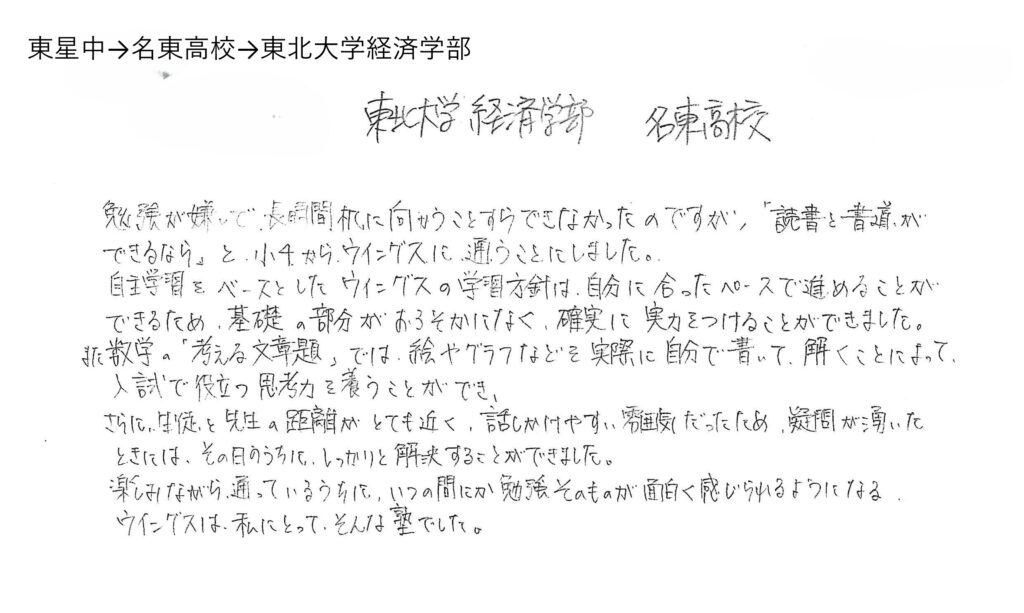 東星中→名東高校→東北大学経済学部
東北大学 経済学部　名東高校
勉強が嫌いで、長時間机に向かうことすらできなかったのですが、「読書と書道が
できるなら」と、小4から、ウイングスに、通うことにしました。
自主学習をベースとしたウイングスの学習方針は、自分に合ったペースで進めることが
できるため、基礎の部分がおろそかになく、確実に実力をつけることができました。
また数学の「考える文章題」では、絵やグラフなどを実際に自分で書いて、解くことによって、
入試で役立つ思考力を養うことができ、
さらに、生徒と先生の距離がとても近く、話しかけやすい雰囲気だったため、疑問が湧いた
ときには、その日のうちに、しっかりと解決することができました。
楽しみながら、通っているうちに、いつの間にか勉強そのものが面白く感じられるようになる、
ウイングスは、私にとって、そんな塾でした。